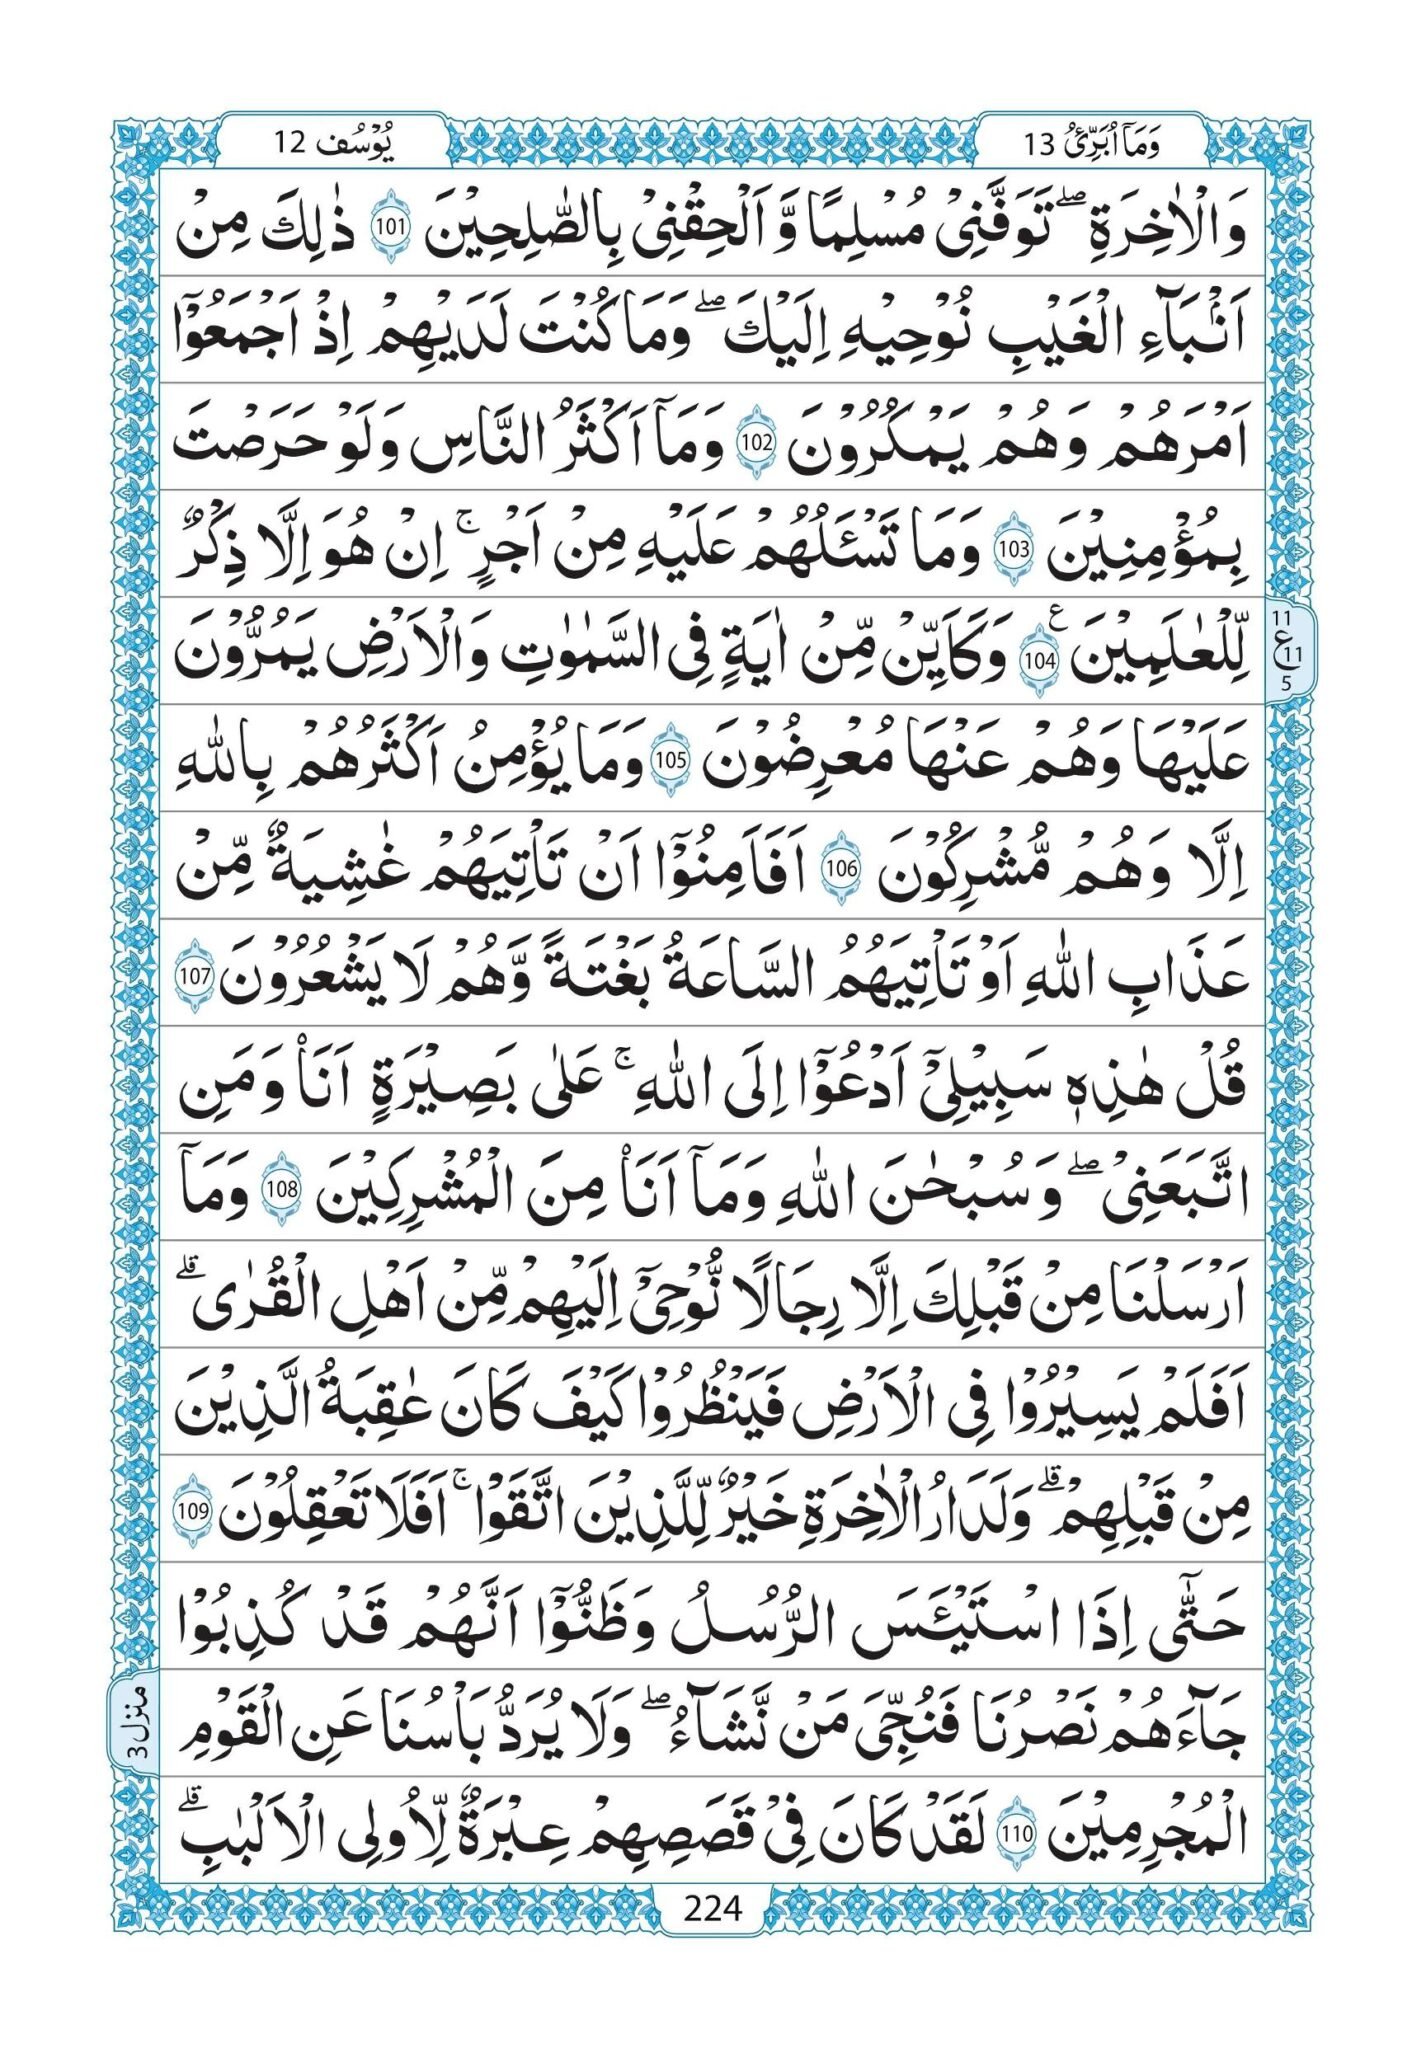 وَمَاۤ اُبَرِّئُ 13
يُوْسُف 12
وَالْاٰخِرَةِ ۖ تَوَفَّنِىْ مُسْلِمًا وَّ اَلْحِقْنِىْ بِالصّٰلِحِيْنَ 101 ذٰلِكَ مِنْ
اَنْۢبَآءِ الْغَيْبِ نُوْحِيْهِ اِلَيْكَ ۖ وَمَا كُنْتَ لَدَيْهِمْ اِذْ اَجْمَعُوْۤا
اَمْرَهُمْ وَهُمْ يَمْكُرُوْنَ 102 وَمَاۤ اَكْثَرُ النَّاسِ وَلَوْ حَرَصْتَ
بِمُؤْمِنِيْنَ 103 وَمَا تَسْـَٔلُهُمْ عَلَيْهِ مِنْ اَجْرٍ ۚ اِنْ هُوَ اِلَّا ذِكْرٌ
لِّلْعٰلَمِيْنَ 104 ع وَكَاَيِّنْ مِّنْ اٰيَةٍ فِى السَّمٰوٰتِ وَالْاَرْضِ يَمُرُّوْنَ
11
ع 11
5
عَلَيْهَا وَهُمْ عَنْهَا مُعْرِضُوْنَ 105 وَمَا يُؤْمِنُ اَكْثَرُهُمْ بِاللّٰهِ
اِلَّا وَهُمْ مُّشْرِكُوْنَ 106 اَفَاَمِنُوْۤا اَنْ تَاْتِيَهُمْ غٰشِيَةٌ مِّنْ
عَذَابِ اللّٰهِ اَوْ تَاْتِيَهُمُ السَّاعَةُ بَغْتَةً وَّهُمْ لَا يَشْعُرُوْنَ 107
قُلْ هٰذِهٖ سَبِيْلِىْۤ اَدْعُوْۤا اِلَى اللّٰهِ ۚ عَلٰى بَصِيْرَةٍ اَنَا۠ وَمَنِ
اتَّبَعَنِىْ ۖ وَسُبْحٰنَ اللّٰهِ وَمَاۤ اَنَا۠ مِنَ الْمُشْرِكِيْنَ 108 وَمَاۤ
اَرْسَلْنَا مِنْ قَبْلِكَ اِلَّا رِجَالًا نُّوْحِىْۤ اِلَيْهِمْ مِّنْ اَهْلِ الْقُرٰى ۗ
اَفَلَمْ يَسِيْرُوْا فِى الْاَرْضِ فَيَنْظُرُوْا كَيْفَ كَانَ عٰقِبَةُ الَّذِيْنَ
مِنْ قَبْلِهِمْ ۗ وَلَدَارُ الْاٰخِرَةِ خَيْرٌ لِّلَّذِيْنَ اتَّقَوْا ۚ اَفَلَا تَعْقِلُوْنَ 109
حَتّٰۤى اِذَا اسْتَيْـَٔسَ الرُّسُلُ وَظَنُّوْۤا اَنَّهُمْ قَدْ كُذِبُوْا
جَآءَهُمْ نَصْرُنَا فَنُجِّىَ مَنْ نَّشَآءُ ۖ وَلَا يُرَدُّ بَاْسُنَا عَنِ الْقَوْمِ
منزل 3
الْمُجْرِمِيْنَ 110 لَقَدْ كَانَ فِىْ قَصَصِهِمْ عِبْرَةٌ لِّاُولِى الْاَلْبٰبِ ۗ
224